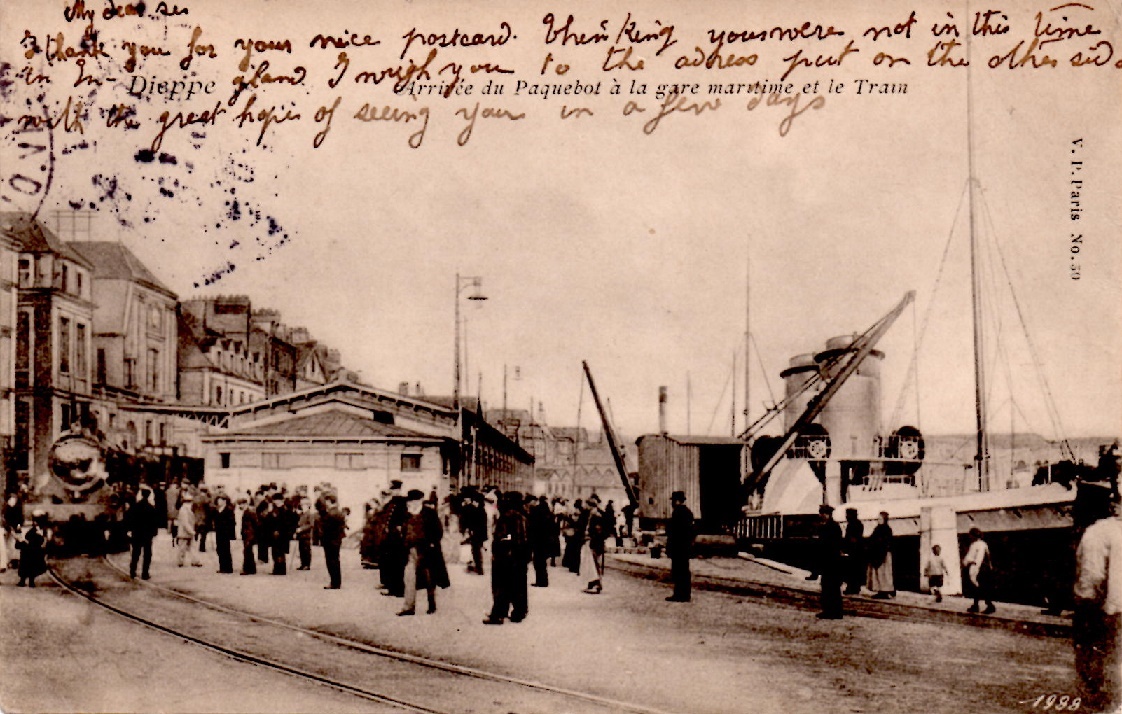 My dear sir
I thank you for your nice postcard. Thinking you were not in this time
in En-gland I wrigh you to the adress put on the other side
with the great hopes of seeing your in a few days
Dieppe Arrivée du Paquebot à la gare maritime et le Train
V. P. Paris No. 59
1999